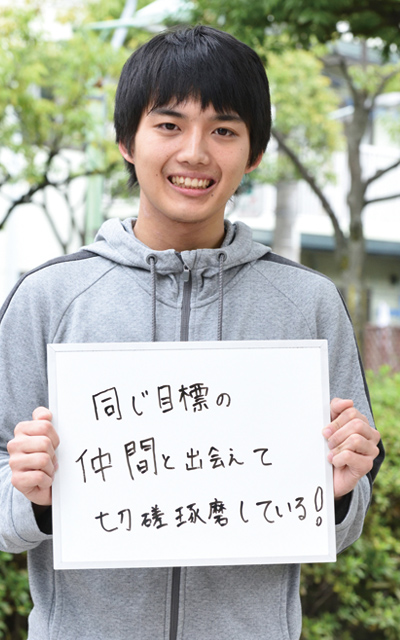 同じ目標の
仲間と出会えて
切磋琢磨している!